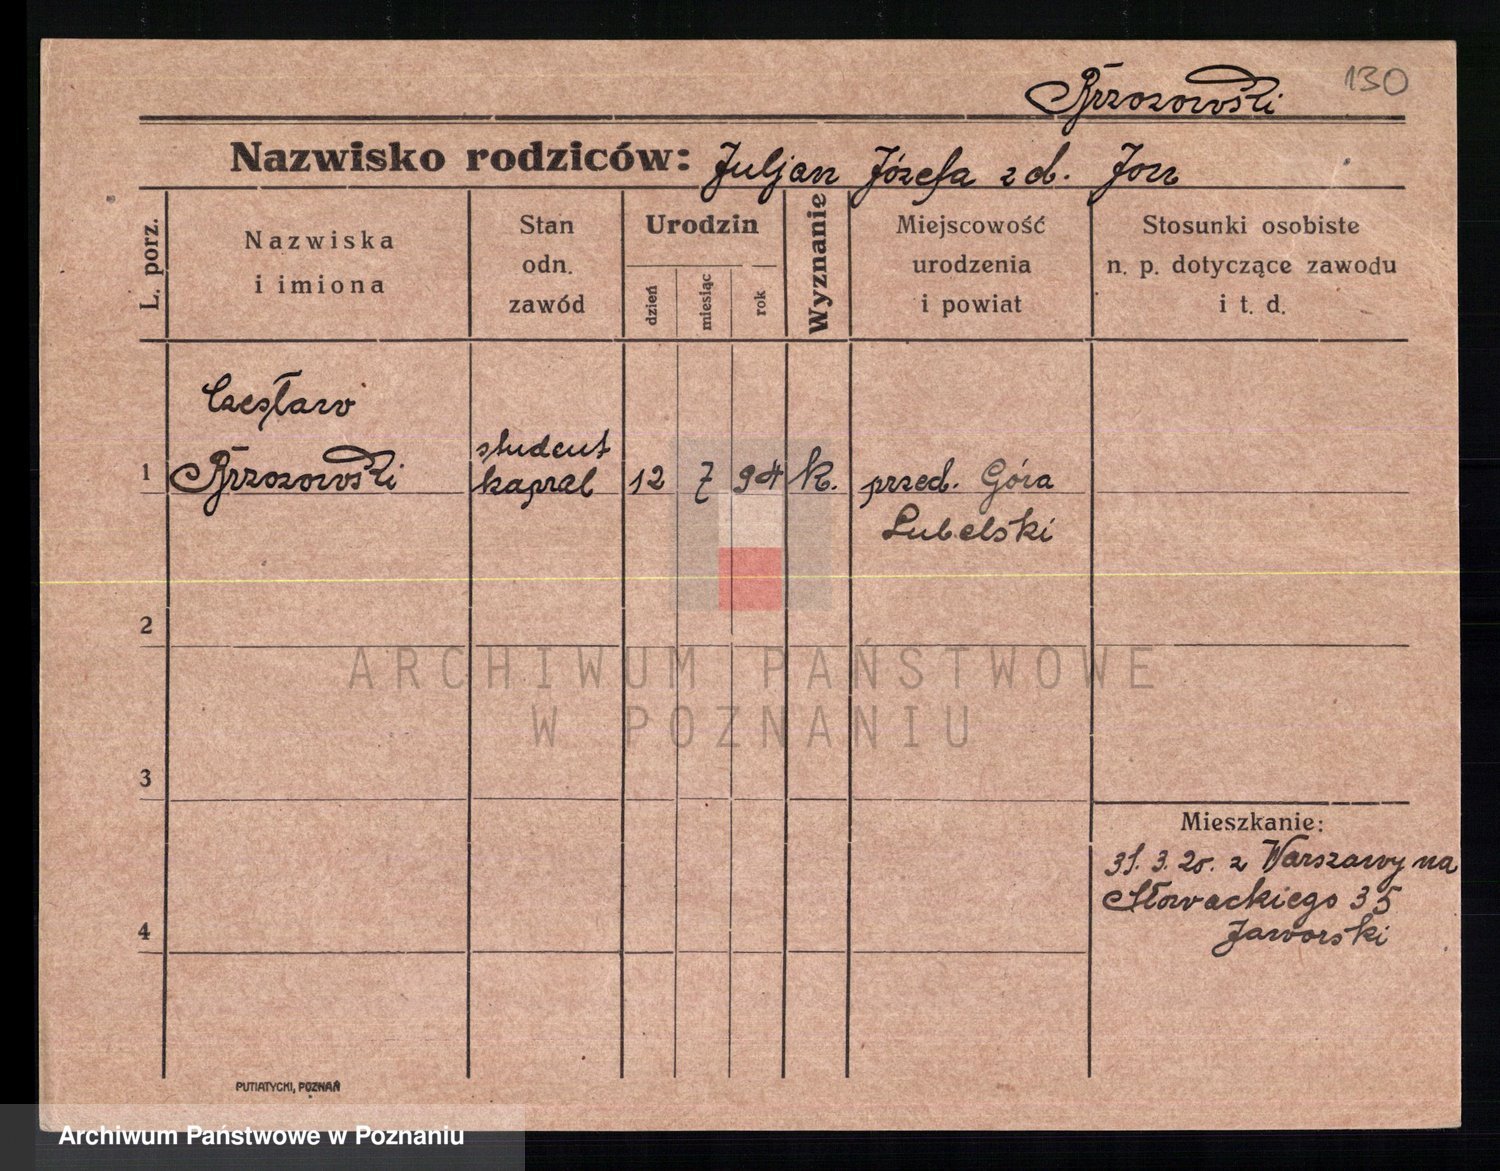 130
Brzozowski
Nazwisko rodziców: Juljan Józefa zd. Jon
L. porz.
Nazwiska
i imiona
Stan
odn.
zawód
Urodzin
dzień
miesiąc
rok
Wyznanie
Miejscowość
urodzenia
i powiat
Stosunki osobiste
n. p. dotyczące zawodu
i t. d.
Czesław
1 Brzozowski
student
kapral
12 7 94 k.
przed. Góra
Lubelski
2
3
4
Mieszkanie:
31. 3. 20. z Warszawy na
Słowackiego 35
Jaworski
PUTIATYCKI, POZNAŃ
ARCHIWUM PAŃSTWOWE
W POZNANIU
Archiwum Państwowe w Poznaniu